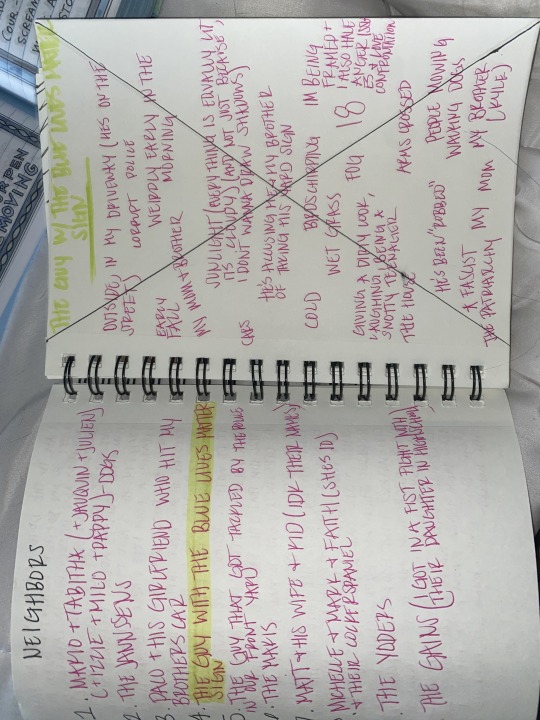 NEIGHBORS
1. MARIO + TABITHA (+ JAUQUIN + JULIEN)
(+ IZZIE + MILO + PAPPY) - DOGS
2. THE JANNSENS
3 PACO + HIS GIRLFRIEND WHO HIT MY
BROTHERS CAR
4. THE GUY WITH THE BLUE LIVES MATTER
SIGN
5. THE GUY THAT GOT TACKLED BY THE
IN OUR FRONT YARD
THE MAVIS
7. MATT + HIS WIFE + KID (IDK THEIR NAMES)
MICHELLE + MARK + FAITH (SHES 10)
+ THEIR COCKERSPANIEL
THE YODERS
THE GAINS (I GOT IN A FIST FIGHT WITH
THEIR DAUGHTER IN HIGHSCHOOL)
THE GUY W/ THE BLUE LIVES MATTER
SIGN
OUTSIDE, IN MY DRIVEWAY (HES ON THE
STREET)
CORRUPT POLICE
EARLY
FALL
WEIRDLY EARLY IN THE
MORNING
MY MOM + BROTHER
SUNLIGHT (EVERYTHING IS EQUALLY LIT,
ITS CLOUDY) (AND NOT JUST BECAUSE
I DONT WANNA DRAW SHADOWS)
CARS
HE'S ACCUSING ME + MY BROTHER
OF TAKING HIS YARD SIGN
COLD
WET GRASS
FOG
18
IM BEING
FRAMED +
I ALSO HALE
ANGER ISSUES
+ LOVE
CONFRONTATION
GIVING A DIRTY LOOK,
LAUGHING, BEING A
SNOTTY TEENAGER
ARMS CROSSED
THE HOUSE
HE'S BEEN "ROBBED"
PEOPLE MOWING
WALKING DOGS
A FASCIST
MY MOM
MY BROTHER
(KYLE)
THE PATRIARCHY
COUR
SCREAM
MOVING